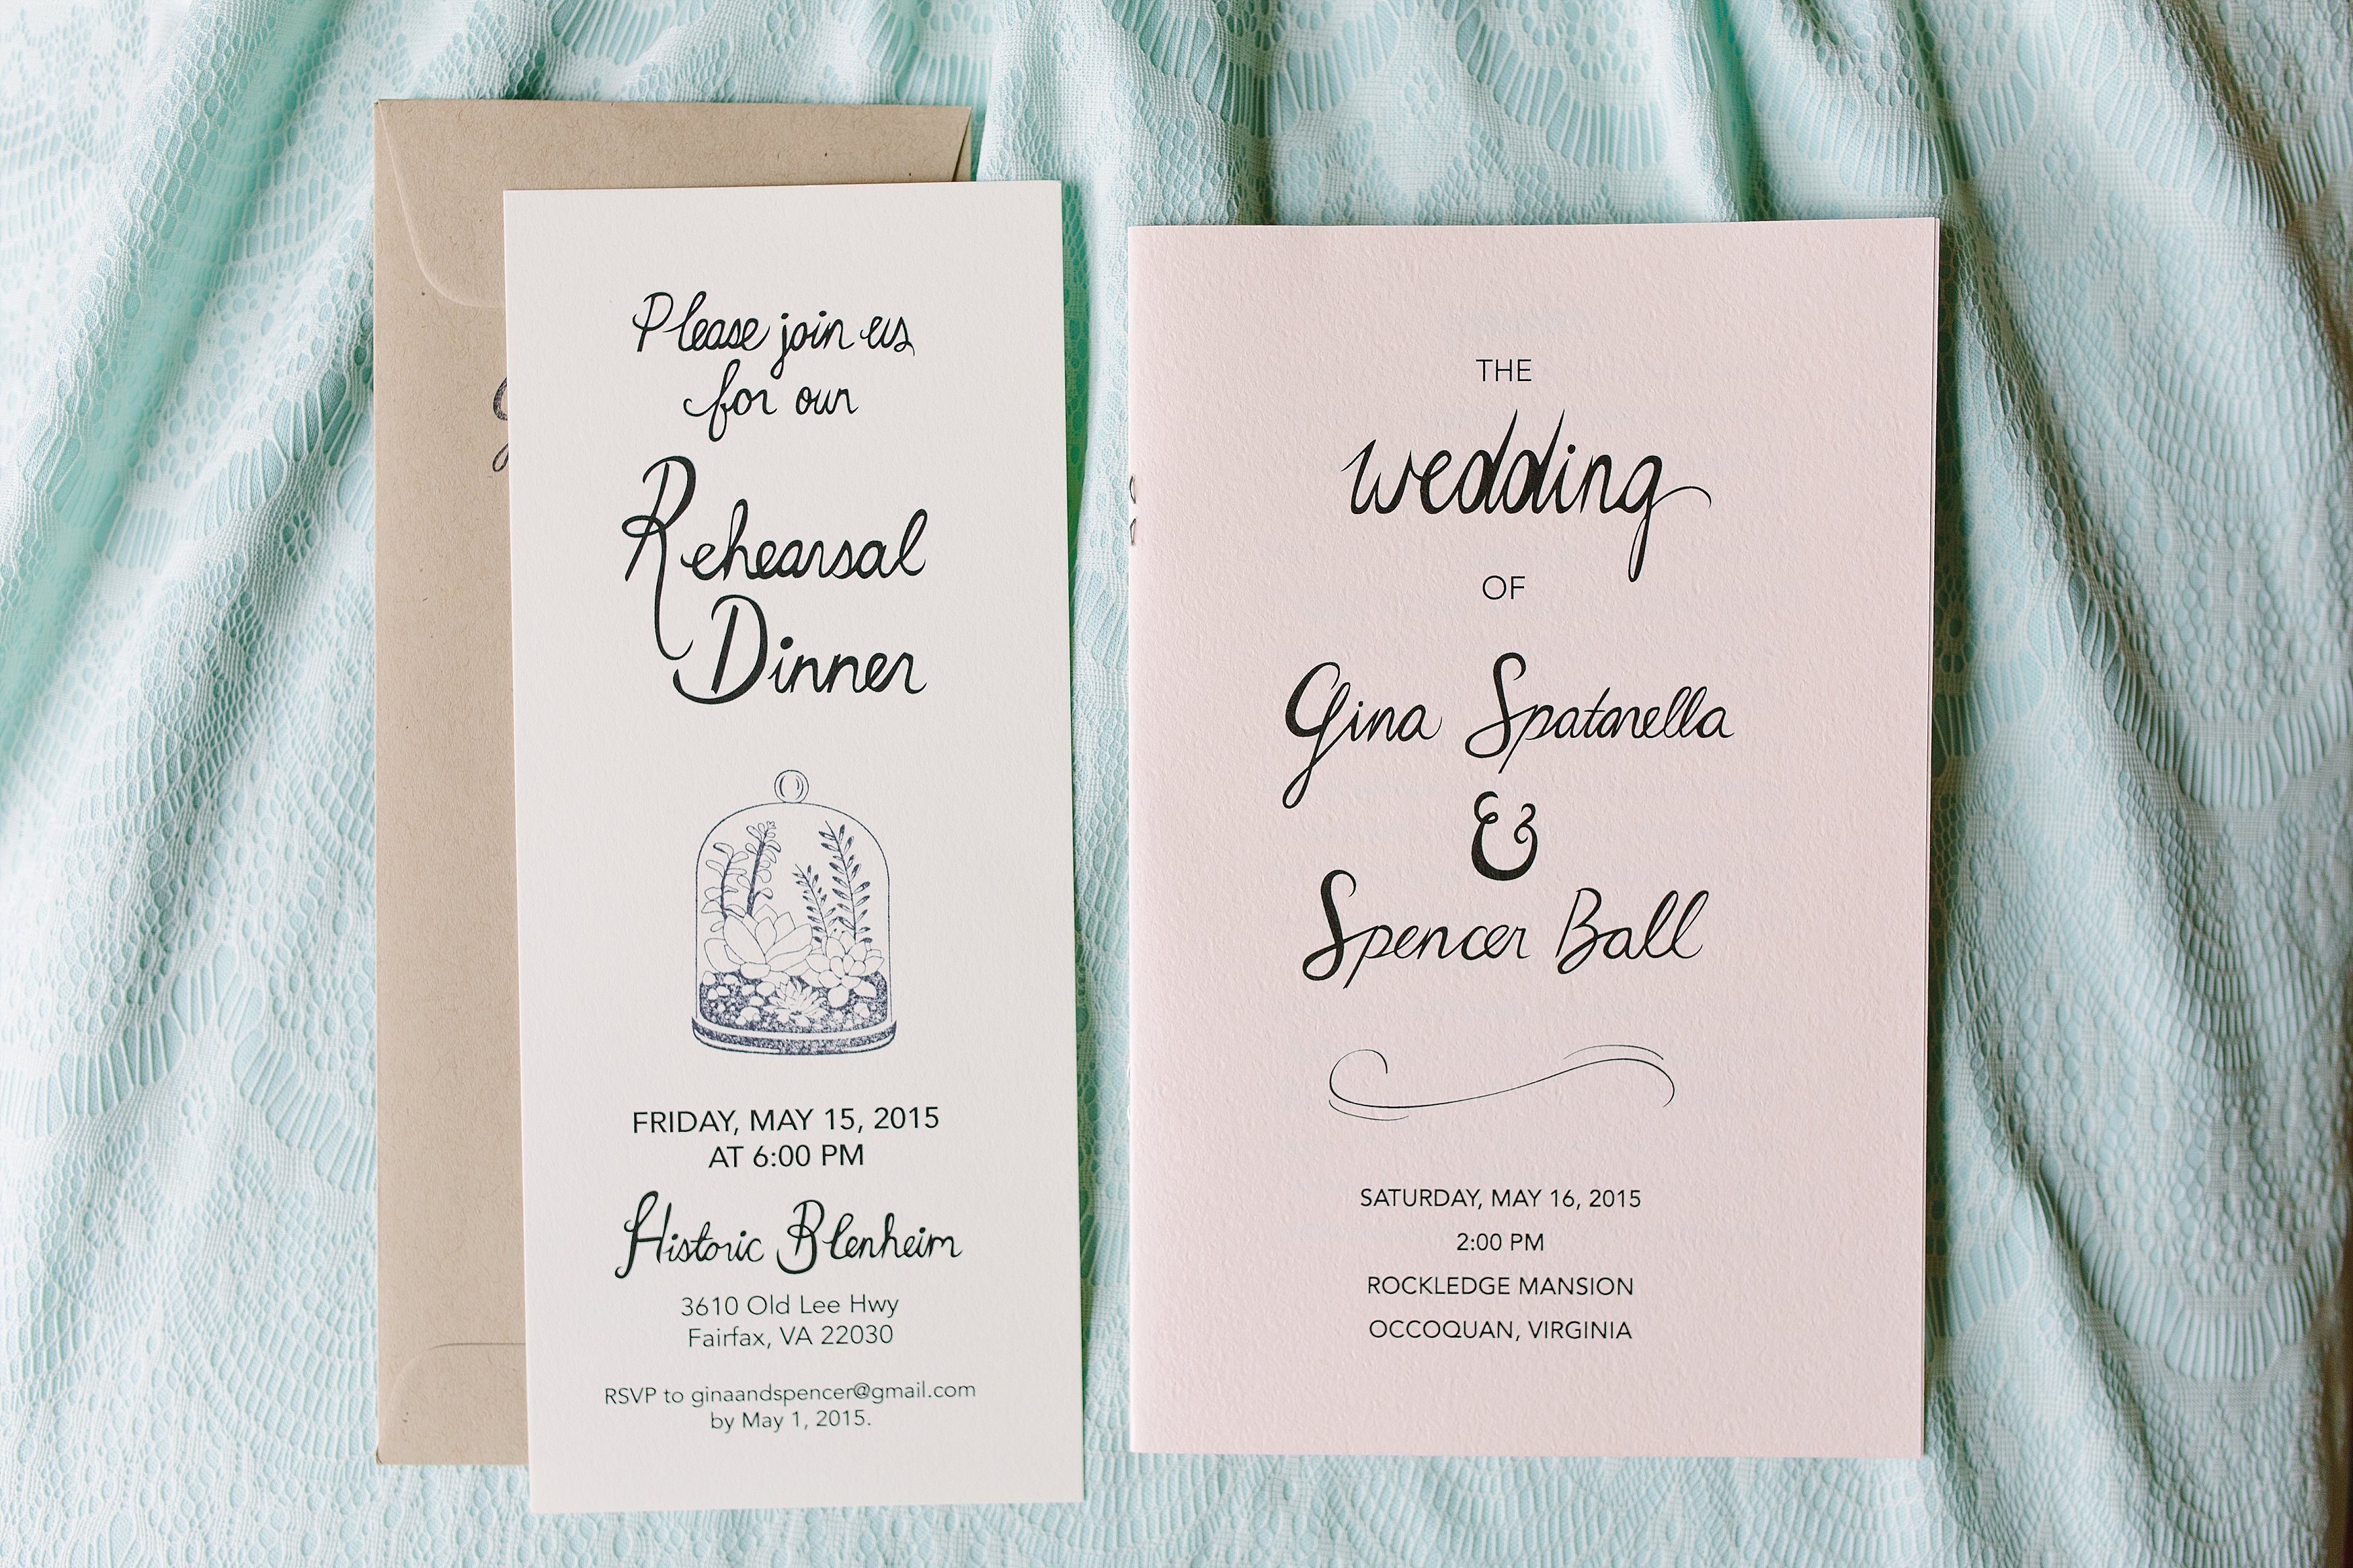 Please join us
for our
Rehearsal
Dinner
FRIDAY, MAY 15, 2015
AT 6:00 PM
Historic Blenheim
3610 Old Lee Hwy
Fairfax, VA 22030
RSVP to ginaandspencer@gmail.com
by May 1, 2015.
THE
wedding
OF
Gina Spatarella
&
Spencer Ball
SATURDAY, MAY 16, 2015
2:00 PM
ROCKLEDGE MANSION
OCCOQUAN, VIRGINIA